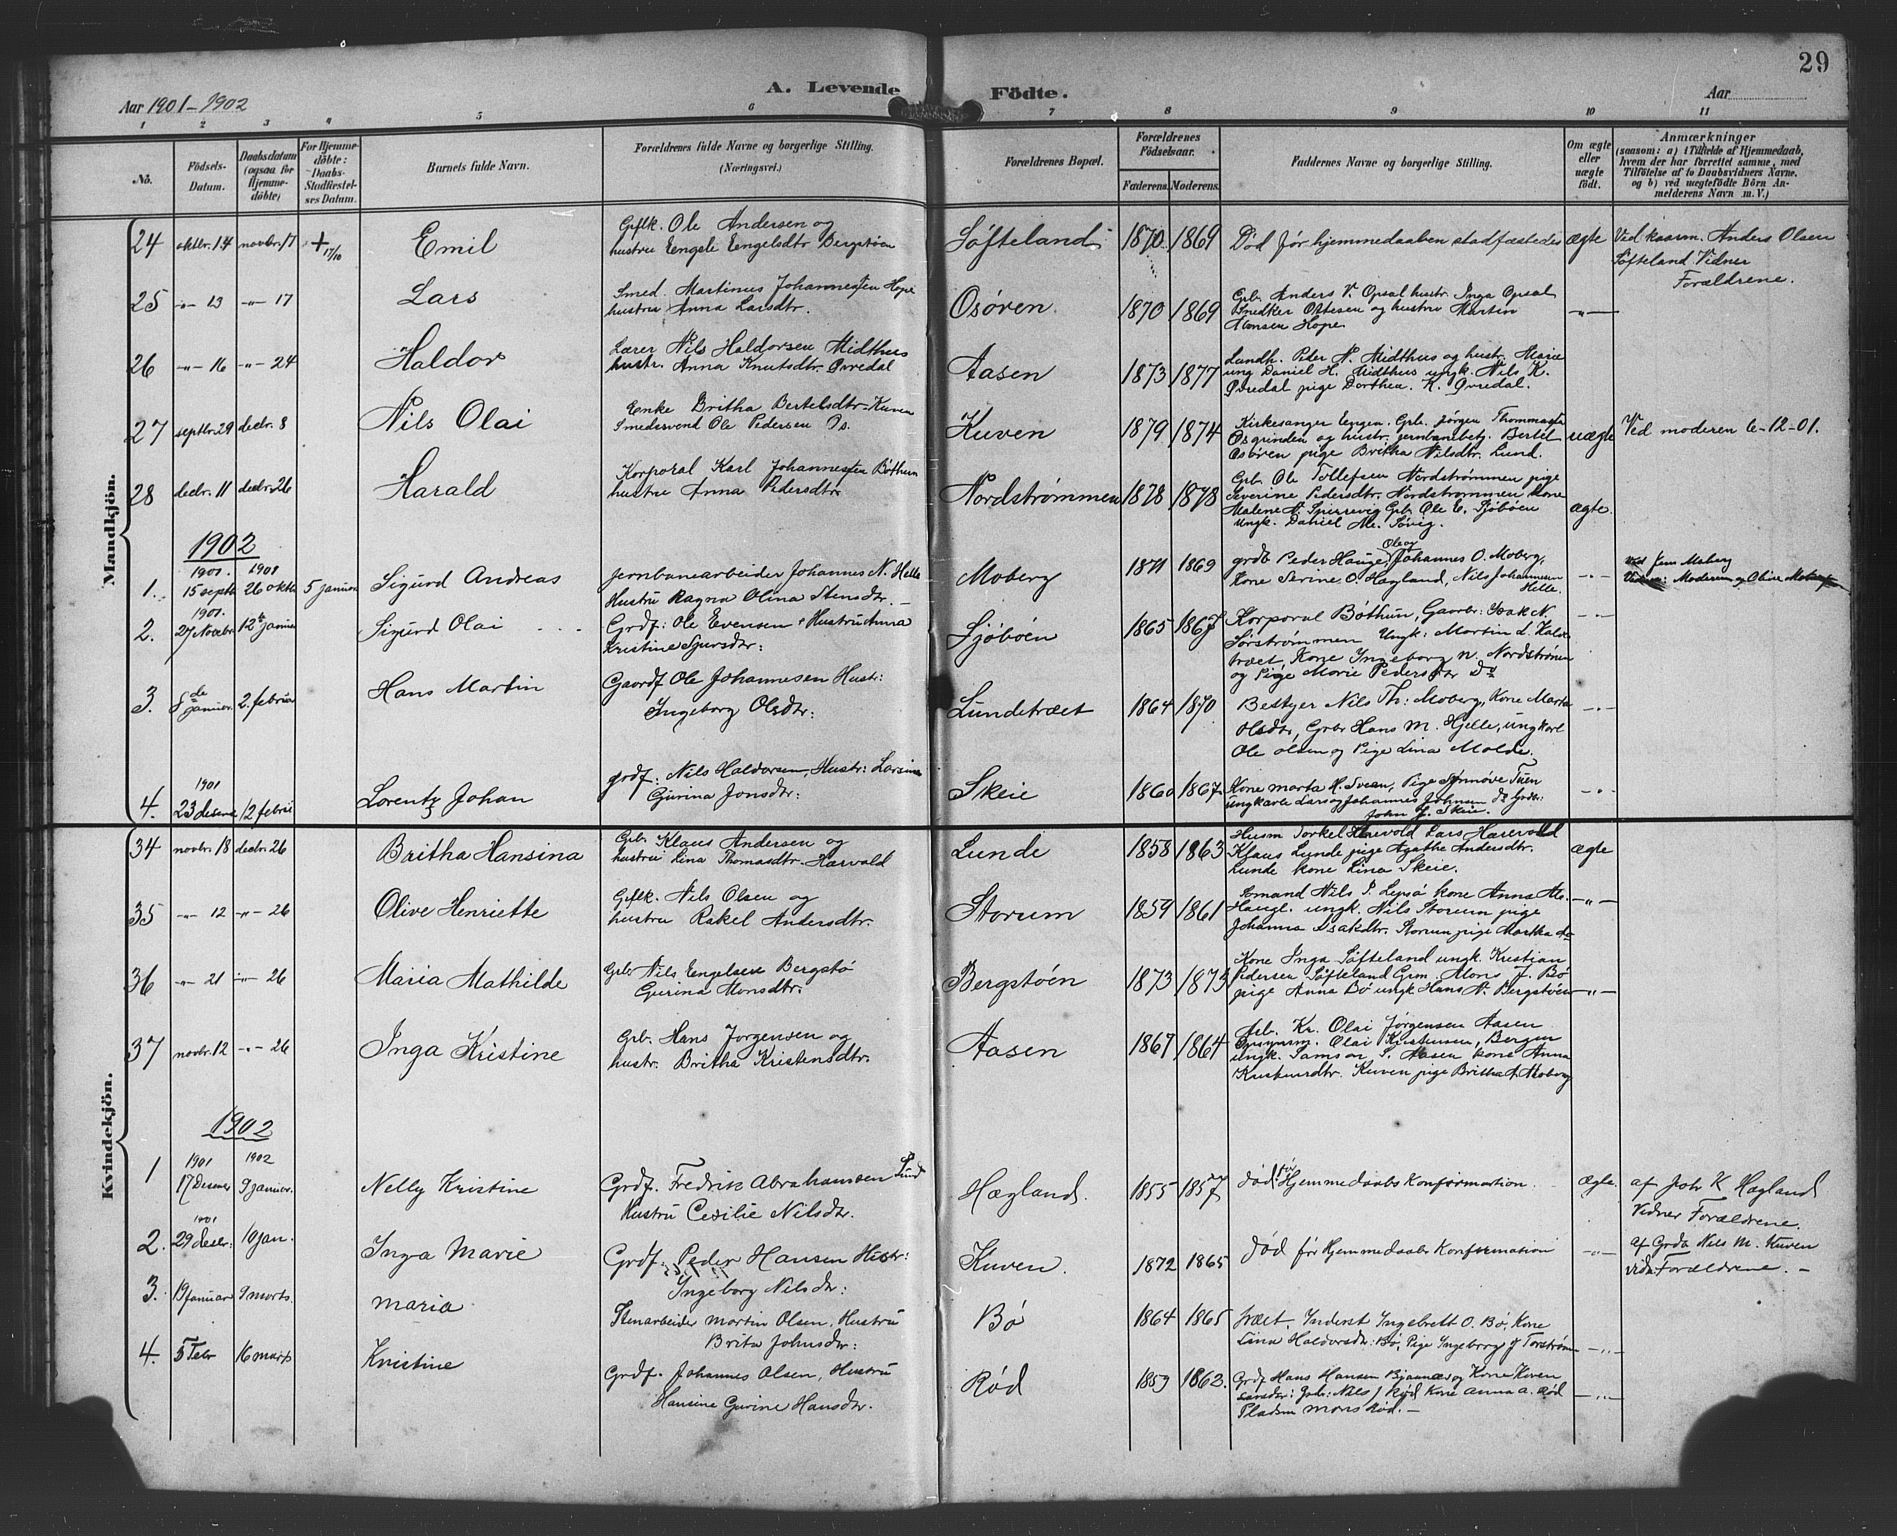 29
Aar 1901-1902
A. Levende Födte.
Aar
1 2 3 4 5 6 7 8 9 10 11
No.
Födsels-Datum.
Daabsdatum (ogsaa for Hjemmedöbte)
For Hjemmedöbte: Daabs-Stadfæstelses Datum.
Barnets fulde Navn.
Forældrenes fulde Navne og borgerlige Stilling. (Næringsvei.)
Forældrenes Bopæl.
Forældrenes Födselsaar.
Faderens. Moderens.
Faddernes Navne og borgerlige Stilling.
Om ægte eller uægte födt.
Anmærkninger
(saasom: a) i Tilfælde af Hjemmedaab, hvem der har forrettet samme, med Tilföielse af to Daabsvidners Navne, og b) ved uægtefödte Börn Anmelderens Navn m. V.)
Mandkjön.
24 oktbr. 14 novbr. 17 + 17/10 Emil
Gflk. Ole Andersen og
hustru Engele Engelsdtr Bergstøen
Søfteland 1870 1869 Død før hjemmedaaben stadfæstedes ægte
Ved kaarm. Anders Olsen
Søfteland Vidner
Forældrene.
25 -„- 13 -„- 17 Lars
Smed. Martinus Johannessen Hope
hustru Anna Larsdtr.
Osøren. 1870 1869
Grb. Anders V. Opsal hustr. Inga Opsal
Snedker Ottesen og hustru Martin
Hansen Hope -„-
26 -„- 16 -„- 24 Haldor
Lærer Nils Haldorsen Midthus
hustr. Anna Knutsdtr. Øvredal
Aasen 1873 1877
Landh. Peder N. Midthus og hustr. Marie
ung Daniel H. Midthus ungk. Nils K.
Øvredal pige Dorthea. K. Øvredal.
27 septbr. 29 decbr. 8 Nils Olai
Enke Britha Bertelsdtr. Kuven
Smedesvend Ole Pedersen Os.
Kuven 1879 1874
Kirkesanger Lengen. Grb. Jørgen Thommasen
Osgrinden og hustr. jernbanebetj. Bertel
Osøren pige Britha Nilsdtr. Lund. uægte
Ved moderen 6-12-01.
28 decbr. 11 decbr. 26 Harald
Korporal Karl Johannessen Bøthun
hustru Anna Pedersdtr
Nordstrømmen 1878 1878
Grb. Ole Tollefsen Nordstrømmen pige
Severine Pedersdtr. Nordstrømmen kone
Malene N. Spirrevig Grb. Ole E. Sjøbøen
Ungk. Daniel M. Søvig. ægte.
1902
1. 1901. 15 septb 1901 26 oktb 5 januar Sigurd Andreas
Jernbanearbeider Johannes N. Helle
Hustru Ragna Olina Stensdtr. -
Moberg 1871 1869
grdb Peder Hauge, Ole og Johannes O. Moberg,
Kone Serine O. Hegland, Nils Johannesen
Helle. -„-
ved Jens Moberg
Vidner: Moderen og Olive
2. 1901. 27 Novebr. 12te januar Sigurd Olai
Grdf: Ole Evensen + Hustru Anna
Kristine Sjursdtr:
Sjöböen 1865 1867
Korporal Bøthun, Gaardbr: Isak N.
Sørstrømmen Ungk: Martin L. Kalve
træet, Kone Ingeborg N. Nordstrømen
og Pige Marie Pedersdtr Ds -„-
3. 8de januar. 2. februar Hans Martin
Gaardf Ole Johannesen Hustr:
Ingeborg Olsdtr:
Lundetræet 1864 1870
Bestyer Nils Th: Moberg, Kone Marta
Olsdtr, Grbr Hans M. Hjelle, ungkarl
Ole Olsen og Pige Lina Molde. -„-
4. 1901 23 desembr 12 februa Lorentz Johan
grdf: Nils Haldorsen, Hustr: Larsine
Gurina Jonsdtr:
Skeie 1860 1867
Kone Marta H. Sveen, Pige Synnøve Tuen
ungkarle Lars og Johannes Johnsen ds Grdbr:
John J. Skeie. -„-
Kvindekjön.
34 novbr. 18 decbr. 26 Britha Hansina
Grb. Klaus Andersen og
hustru Lina Thomasdtr. Harvald
Lunde 1858 1863
Husm Torkel Harvold Lars Harevold
Klaus Lunde pige Agathe Andersdtr.
Lunde kone Lina Skeie. ægte
35 -„- 12 -„- 26 Olive Henriette
Gflk. Nils Olsen og
hustru Rakel Andersdtr.
Storum 1859 1861
Somand Nils P. Lepsø kone Anna M.
Haugl. ungk. Nils Storum pige
Johanna Isakdtr. Storum pige Martha do -„-
36 -„- 21 -„- 26 Maria Mathilde
Grb Nils Engelsen Bergstø
Gurina Monsdtr.
Bergstøen 1873 1873
Kone Inga Søfteland ungk. Kristian
Pedersen Søfteland Grm. Mons J. Bø
pige Anna Bø ungk Hans N. Bergstøen -„-
37 novbr. 12 -„- 26 Inga Kristine
Grb. Hans Jørgensen og
hustr. Britha Kristensdtr.
Aasen 1867 1864
Arb. Kr. Olai Jørgensen Aasen
Olai Kristensen, Bergen
ungk. Samson S. Aasen kone Anna
Kristensdtr. Kuven pige Britha A. Moberg
1902
1 1901 17 Desember 1902 9 januar. Nelly Kristine
Grdf. Fredrik Abrahamsen Lund
Hustru Cecilie Nilsdtr.
Hægland. 1855 1857 død før Hjemmedaabs Konfirmation. ægte.
af Joh K Hægland
Vidner Forældrene.
2. 1901 29 desbr: 10 jan. Inga Marie
Grdf. Peder Hansen Hustr:
Ingeborg Nilsdtr:
Kuven. 1872 1865 død før Hjemmedaabs Konfirmation -„-
af Grdb Nils M. Kuven
vidn Forældrene. -
3. 19 januar 9 marts. Maria
Stenarbeider Martin Olsen, Hustru
Brita Johnsdtr:
Bø 1864 1865
Inderst Ingebrett O. Bø, Kone
Lina Haldorsdtr: Bø, Pige Ingeborg J Torstrøm -„-
4. 5 Febr 16 marts Kristine
Grdf. Johannes Olsen, Hustru
Hansine Gurine Hansdtr.
Rød 1859 1862.
Grdf Hans Hansen Bjånnes og Kone Kuven
Larsdtr: Grbr: Nils J Rød Kone Anna A. Rød
Pladsm Mons Rød. - -„-